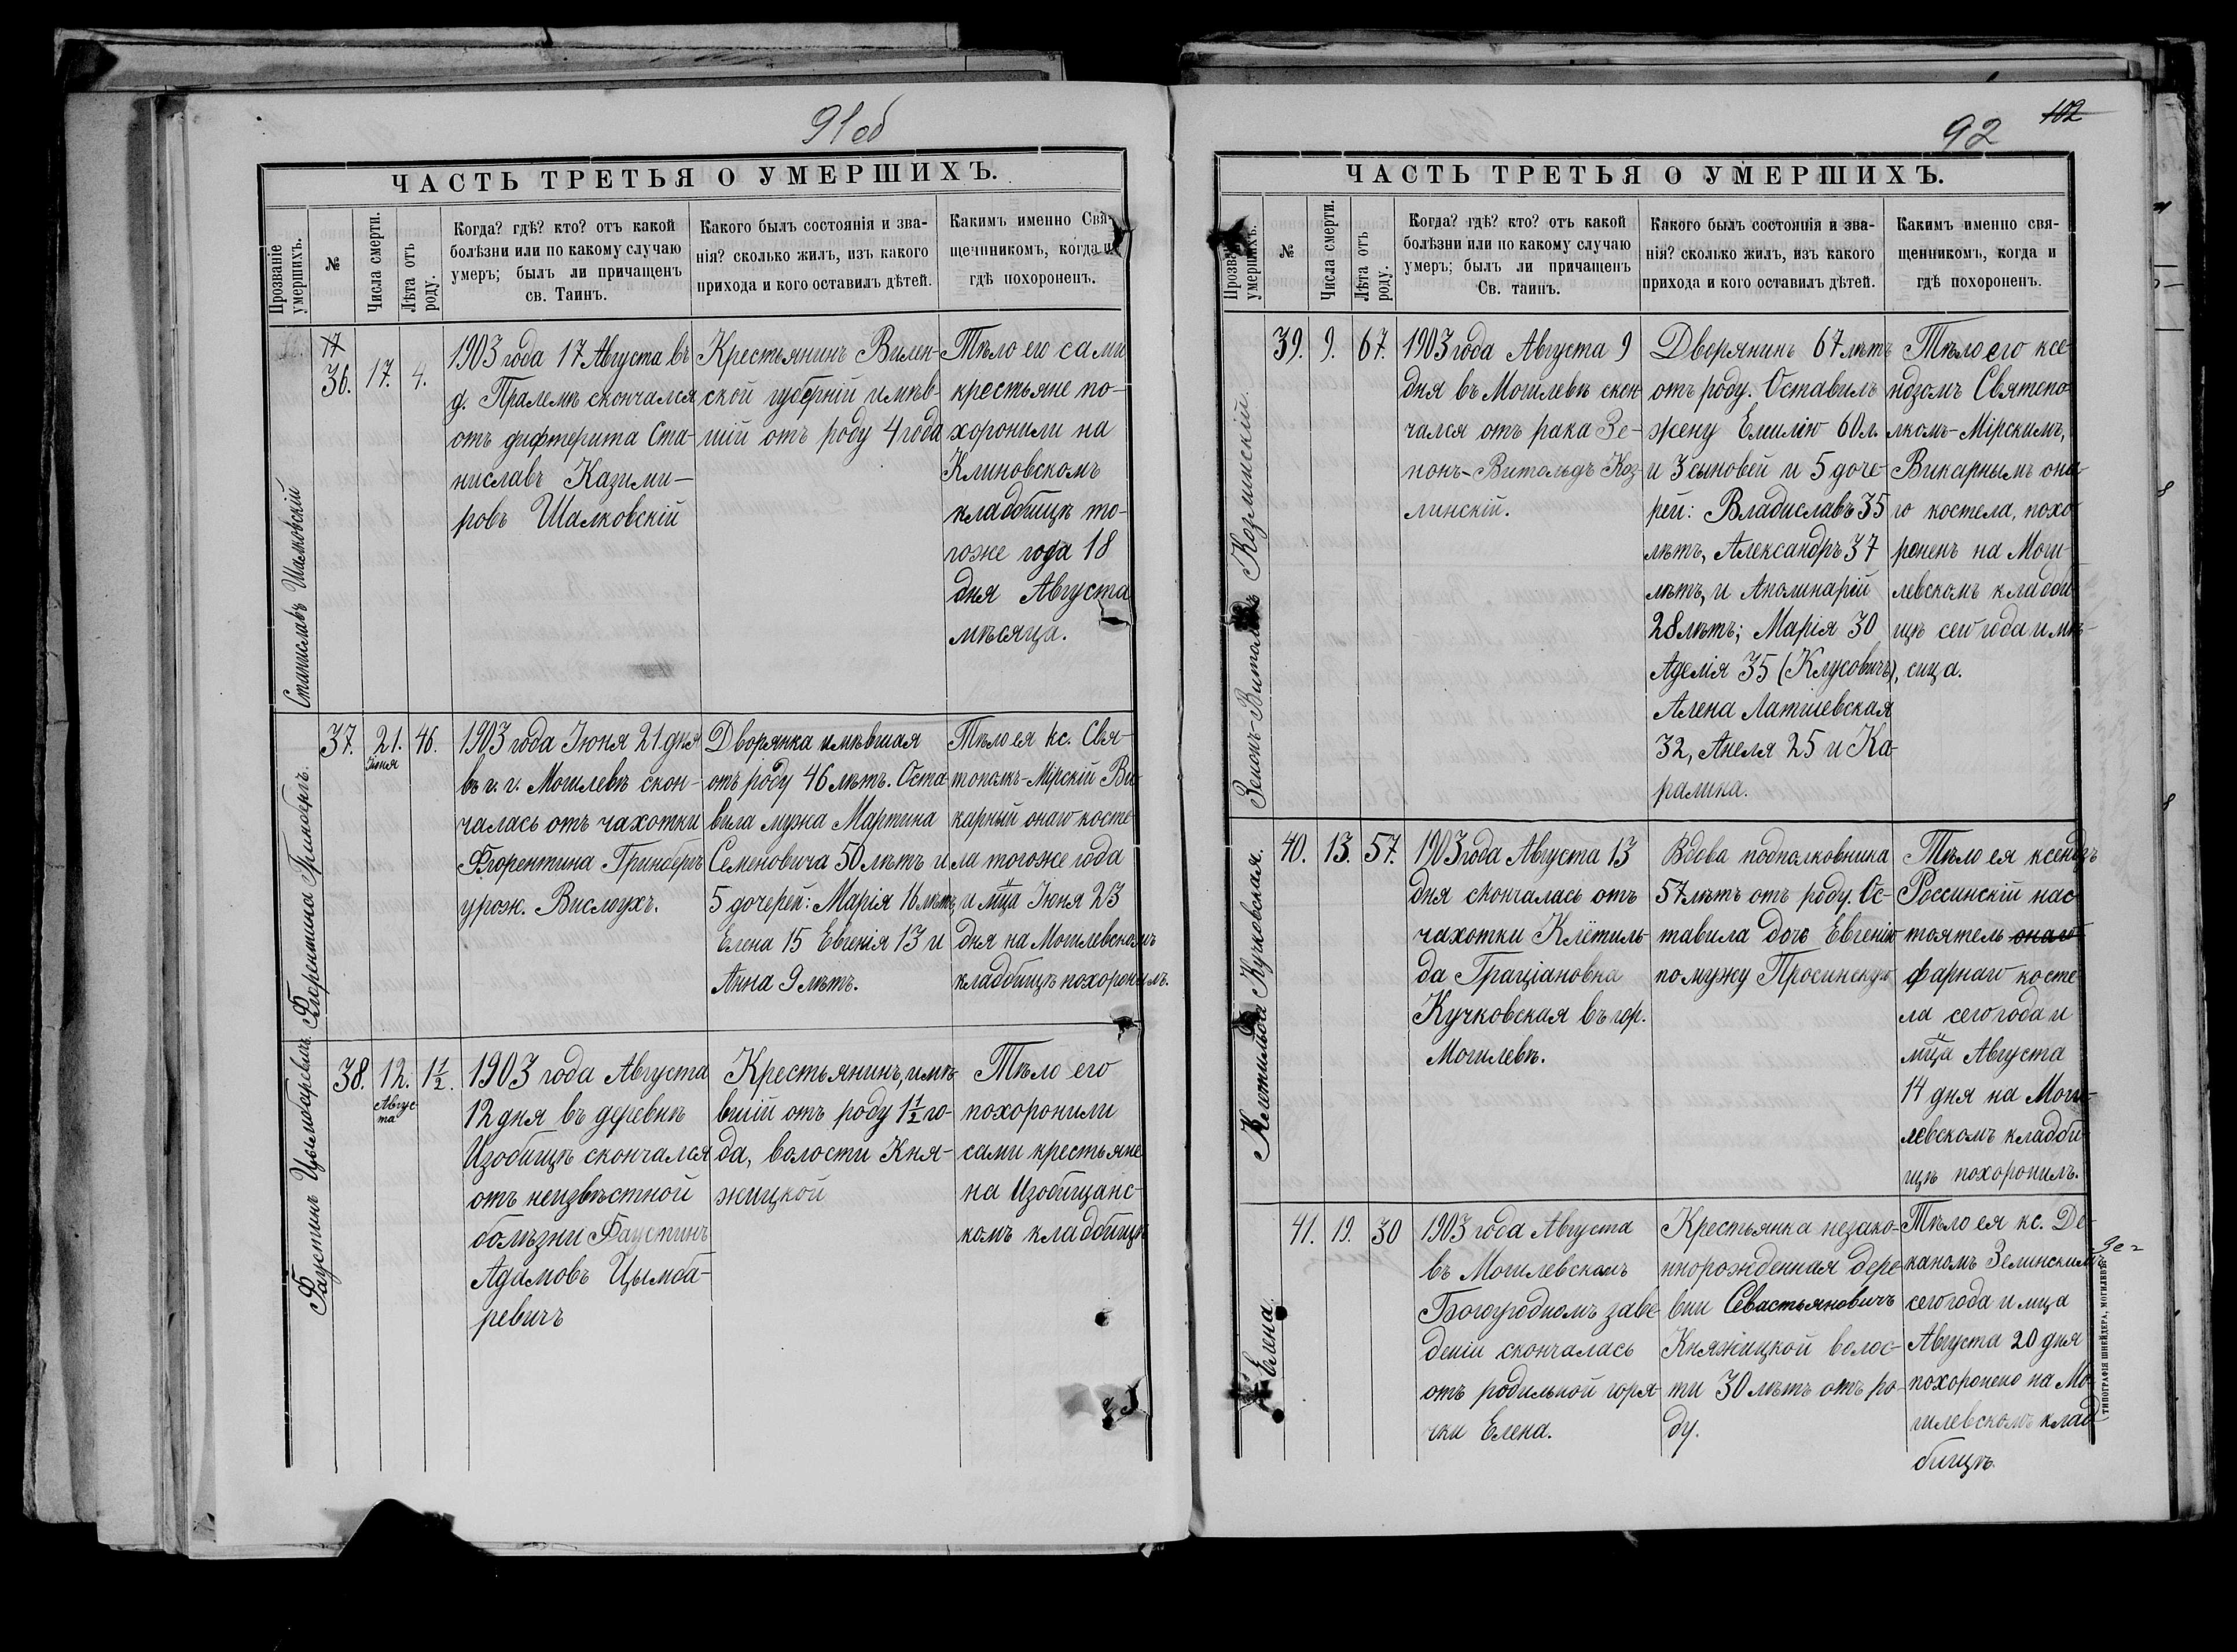 91об
ЧАСТЬ ТРЕТЬЯ О УМЕРШИХЪ.
Прозваніе умершихъ.
№
Числа смерти.
Лѣта отъ роду.
Когда? гдѣ? кто? отъ какой
болѣзни или по какому случаю
умеръ; былъ ли причащенъ
св. Таинъ.
Какого былъ состоянія и зва-
нія? сколько жилъ, изъ какого
прихода и кого оставилъ дѣтей.
Какимъ именно Свя-
щенникомъ, когда и
гдѣ похороненъ.
Станиславъ Шалковскій
17
36.
17.
4.
1903 года 17 Августа въ
д. Пралемкѣ скончался
отъ дифтерита Ста-
ниславъ Казими-
ровъ Шалковскій
Крестьянинъ Вилен-
ской губерніи имѣв-
шій отъ роду 4 года
Тѣло его сами
крестьяне по-
хоронили на
Климовскомъ
кладбищѣ то-
гоже года 18
дня Августа
мѣсяца.
Флорентина Гринбергъ.
37.
21.
Іюня
46.
1903 года Іюня 21 дня
въ г. г. Могилевѣ скон-
чалась отъ чахотки
Флорентина Гринбергъ
урож. Вислоухъ.
Дворянка имѣвшая
отъ роду 46 лѣтъ. Оста-
вила мужа Мартина
Семеновича 50 лѣтъ и
5 дочерей: Марія 16 лѣтъ,
Елена 15 Евгенія 13 и
Анна 9 лѣтъ.
Тѣло ея кс. Свя-
тополкъ-Мірскій Ви-
карный онаго косте-
ла тогоже года
и мца Іюня 23
дня на Могилевскомъ
кладбищѣ похоронилъ.
Фаустинъ Цымбаревичъ.
38.
12.
Авгус-
та
1½.
1903 года Августа
12 дня въ деревнѣ
Изобищѣ скончался
отъ неизвѣстной
болѣзни Фаустинъ
Адамовъ Цымба-
ревичъ
Крестьянинъ, имѣ-
вшій отъ роду 1½ го-
да, волости Кня-
жицкой
Тѣло его
похоронили
сами крестьяне
на Изобищанс-
комъ кладбищѣ
102
92
ЧАСТЬ ТРЕТЬЯ О УМЕРШИХЪ.
Прозваніе умершихъ.
№
Числа смерти.
Лѣта отъ роду.
Когда? гдѣ? кто? отъ какой
болѣзни или по какому случаю
умеръ; былъ ли причащенъ
Св. таинъ.
Какого былъ состоянія и зва-
нія? сколько жилъ, изъ какого
прихода и кого оставилъ дѣтей.
Какимъ именно свя-
щенникомъ, когда и
гдѣ похороненъ.
Зенонъ-Витольдъ Козлинскій.
39.
9.
67.
1903 года Августа 9
дня въ Могилевѣ скон-
чался отъ рака Зе-
нонъ-Витольдъ Коз-
линскій.
Дворянинъ 67 лѣтъ
отъ роду. Оставилъ
жену Емилію 60 л.
и 3 сыновей и 5 доче-
рей: Владиславъ 35
лѣтъ, Александръ 37
лѣтъ, и Аполинарій
28 лѣтъ; Марія 30
Аделія 35 (Клусовичъ),
Алена Латишевская
32, Анеля 25 и Ка-
ралина.
Тѣло его ксе-
ндзомъ Святепо-
лкомъ-Мірскимъ,
Викарнымъ она-
го костела, похо-
роненъ на Моги-
левскомъ кладби-
щѣ сего года и мѣ-
сяца.
Клотильда Кучковская.
40.
13.
57.
1903 года Августа 13
дня скончалась отъ
чахотки Клётиль-
да Граціановна
Кучковская въ гор.
Могилевѣ.
Вдова подполковника
57 лѣтъ отъ роду. Ос-
тавила дочь Евгенію
по мужу Просинскую
Тѣло ея ксендзъ
Россинскій нас-
тоятель онаго
фарнаго косте-
ла сего года и
мца Августа
14 дня на Моги-
левскомъ кладби-
щѣ похоронилъ.
Елена
41.
19.
30
1903 года Августа
въ Могилевскомъ
Богоугодномъ заве-
деніи скончалась
отъ родильной горя-
чки Елена.
Крестьянка незако-
ннорожденная дере-
вни Севастьяновичъ
Княжицкой волос-
ти 30 лѣтъ отъ ро-
ду.
Тѣло ея кс. Де-
каномъ Зелинскимъ
сего года и мца
Августа 20 дня
похоронено на Мо-
гилевскомъ клад-
бищѣ.
ТИПОГРАФІЯ ШНЕЙДЕРА, МОГИЛЕВЪ